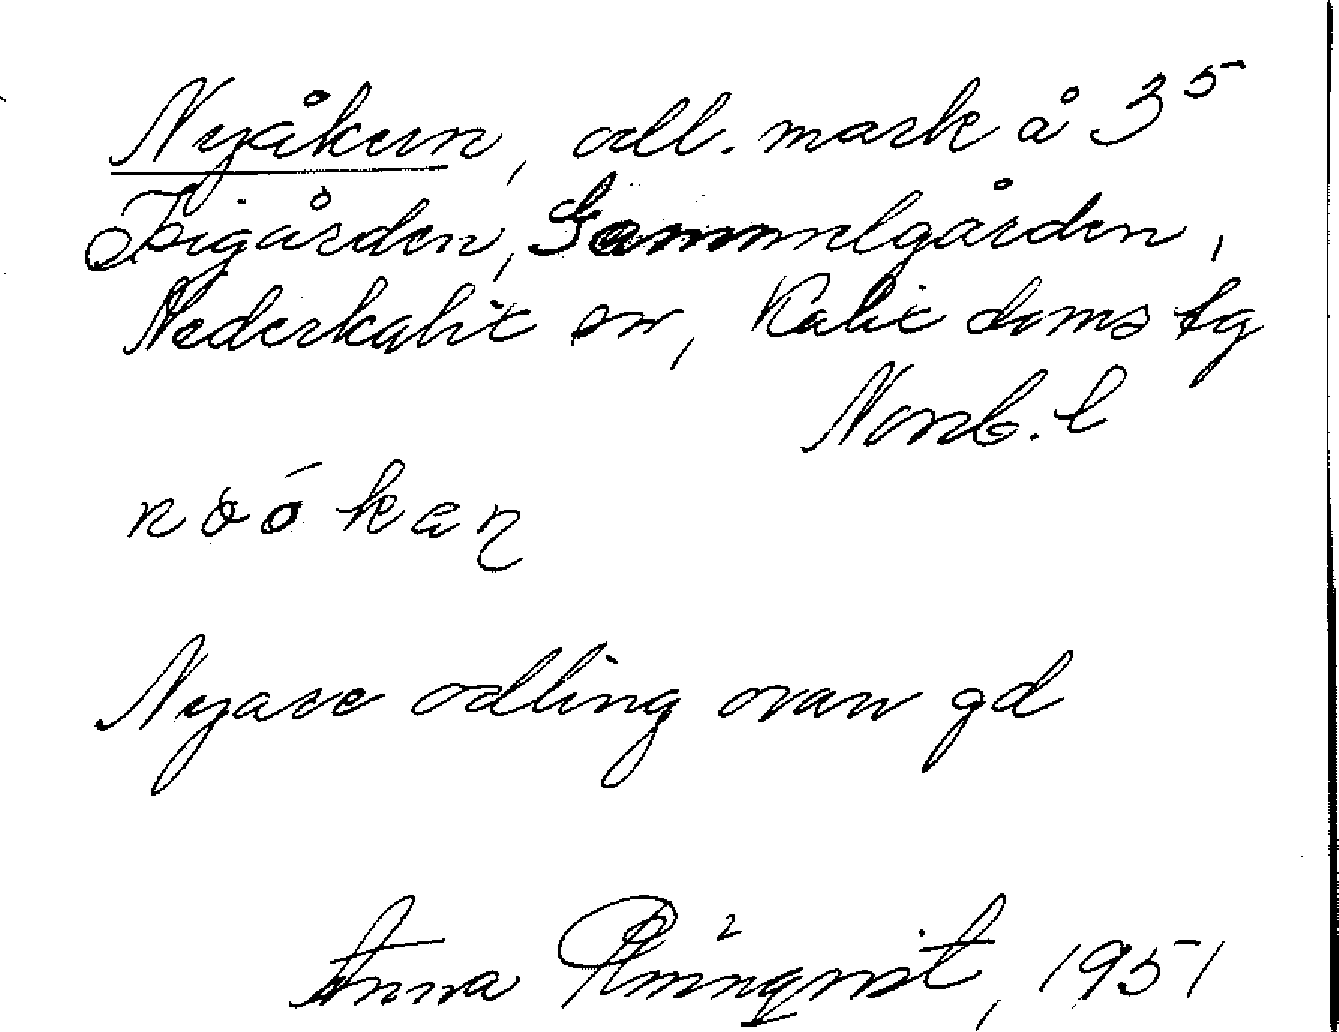 Nyåkern, odl. mark å 3⁵
Isigården, Gammelgården,
Nederkalix sn, Kalix doms tg
Norrb. l
Nyare odling ovan gd
Anna 1951